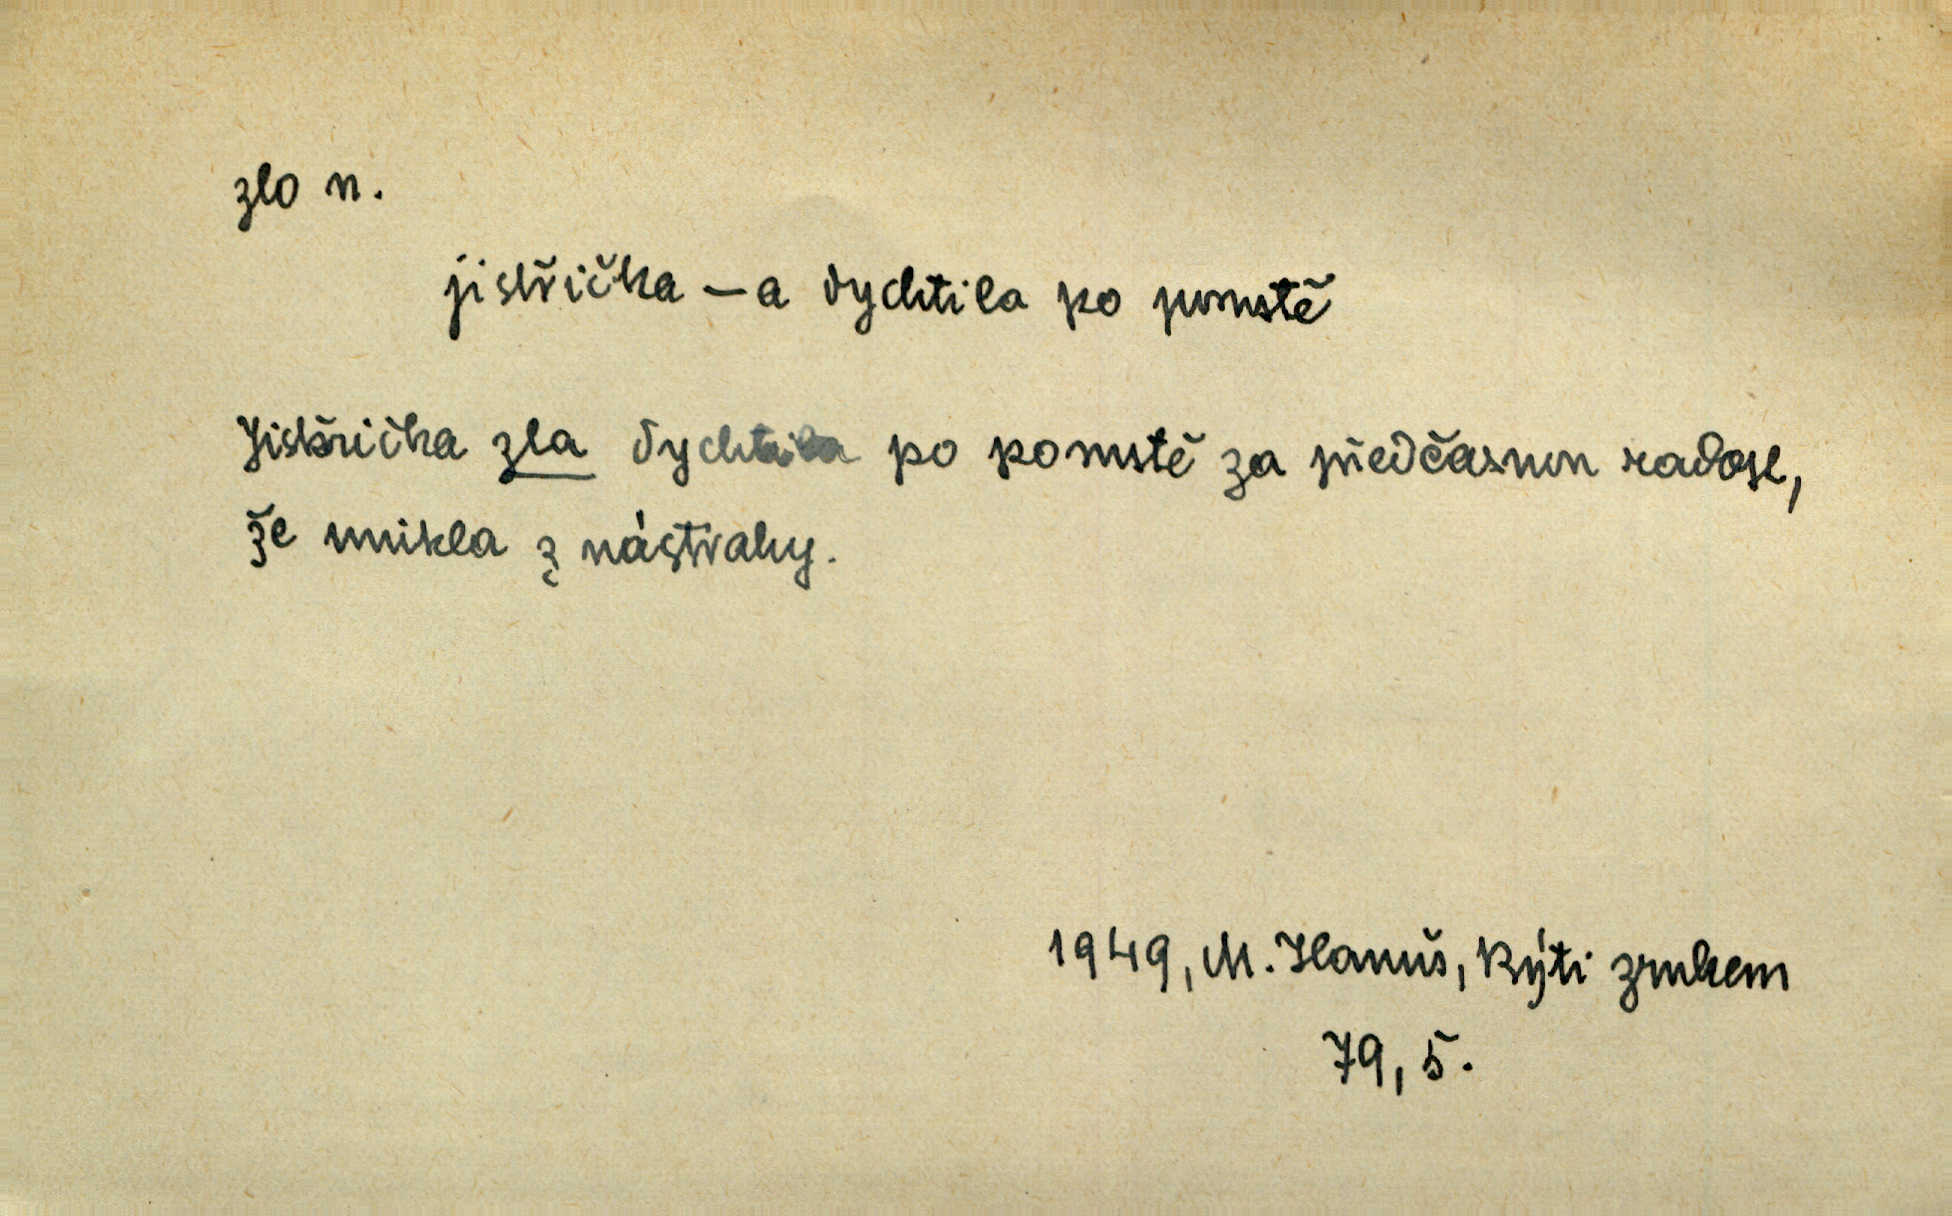 zlo n.
jiskřička –a dychtila po pomstě
Jiskřička zla dychtila po pomstě za předčasnou radost,
že unikla z nástrahy.
1949, M. Hanuš, Rýti zrukem
79, 5.